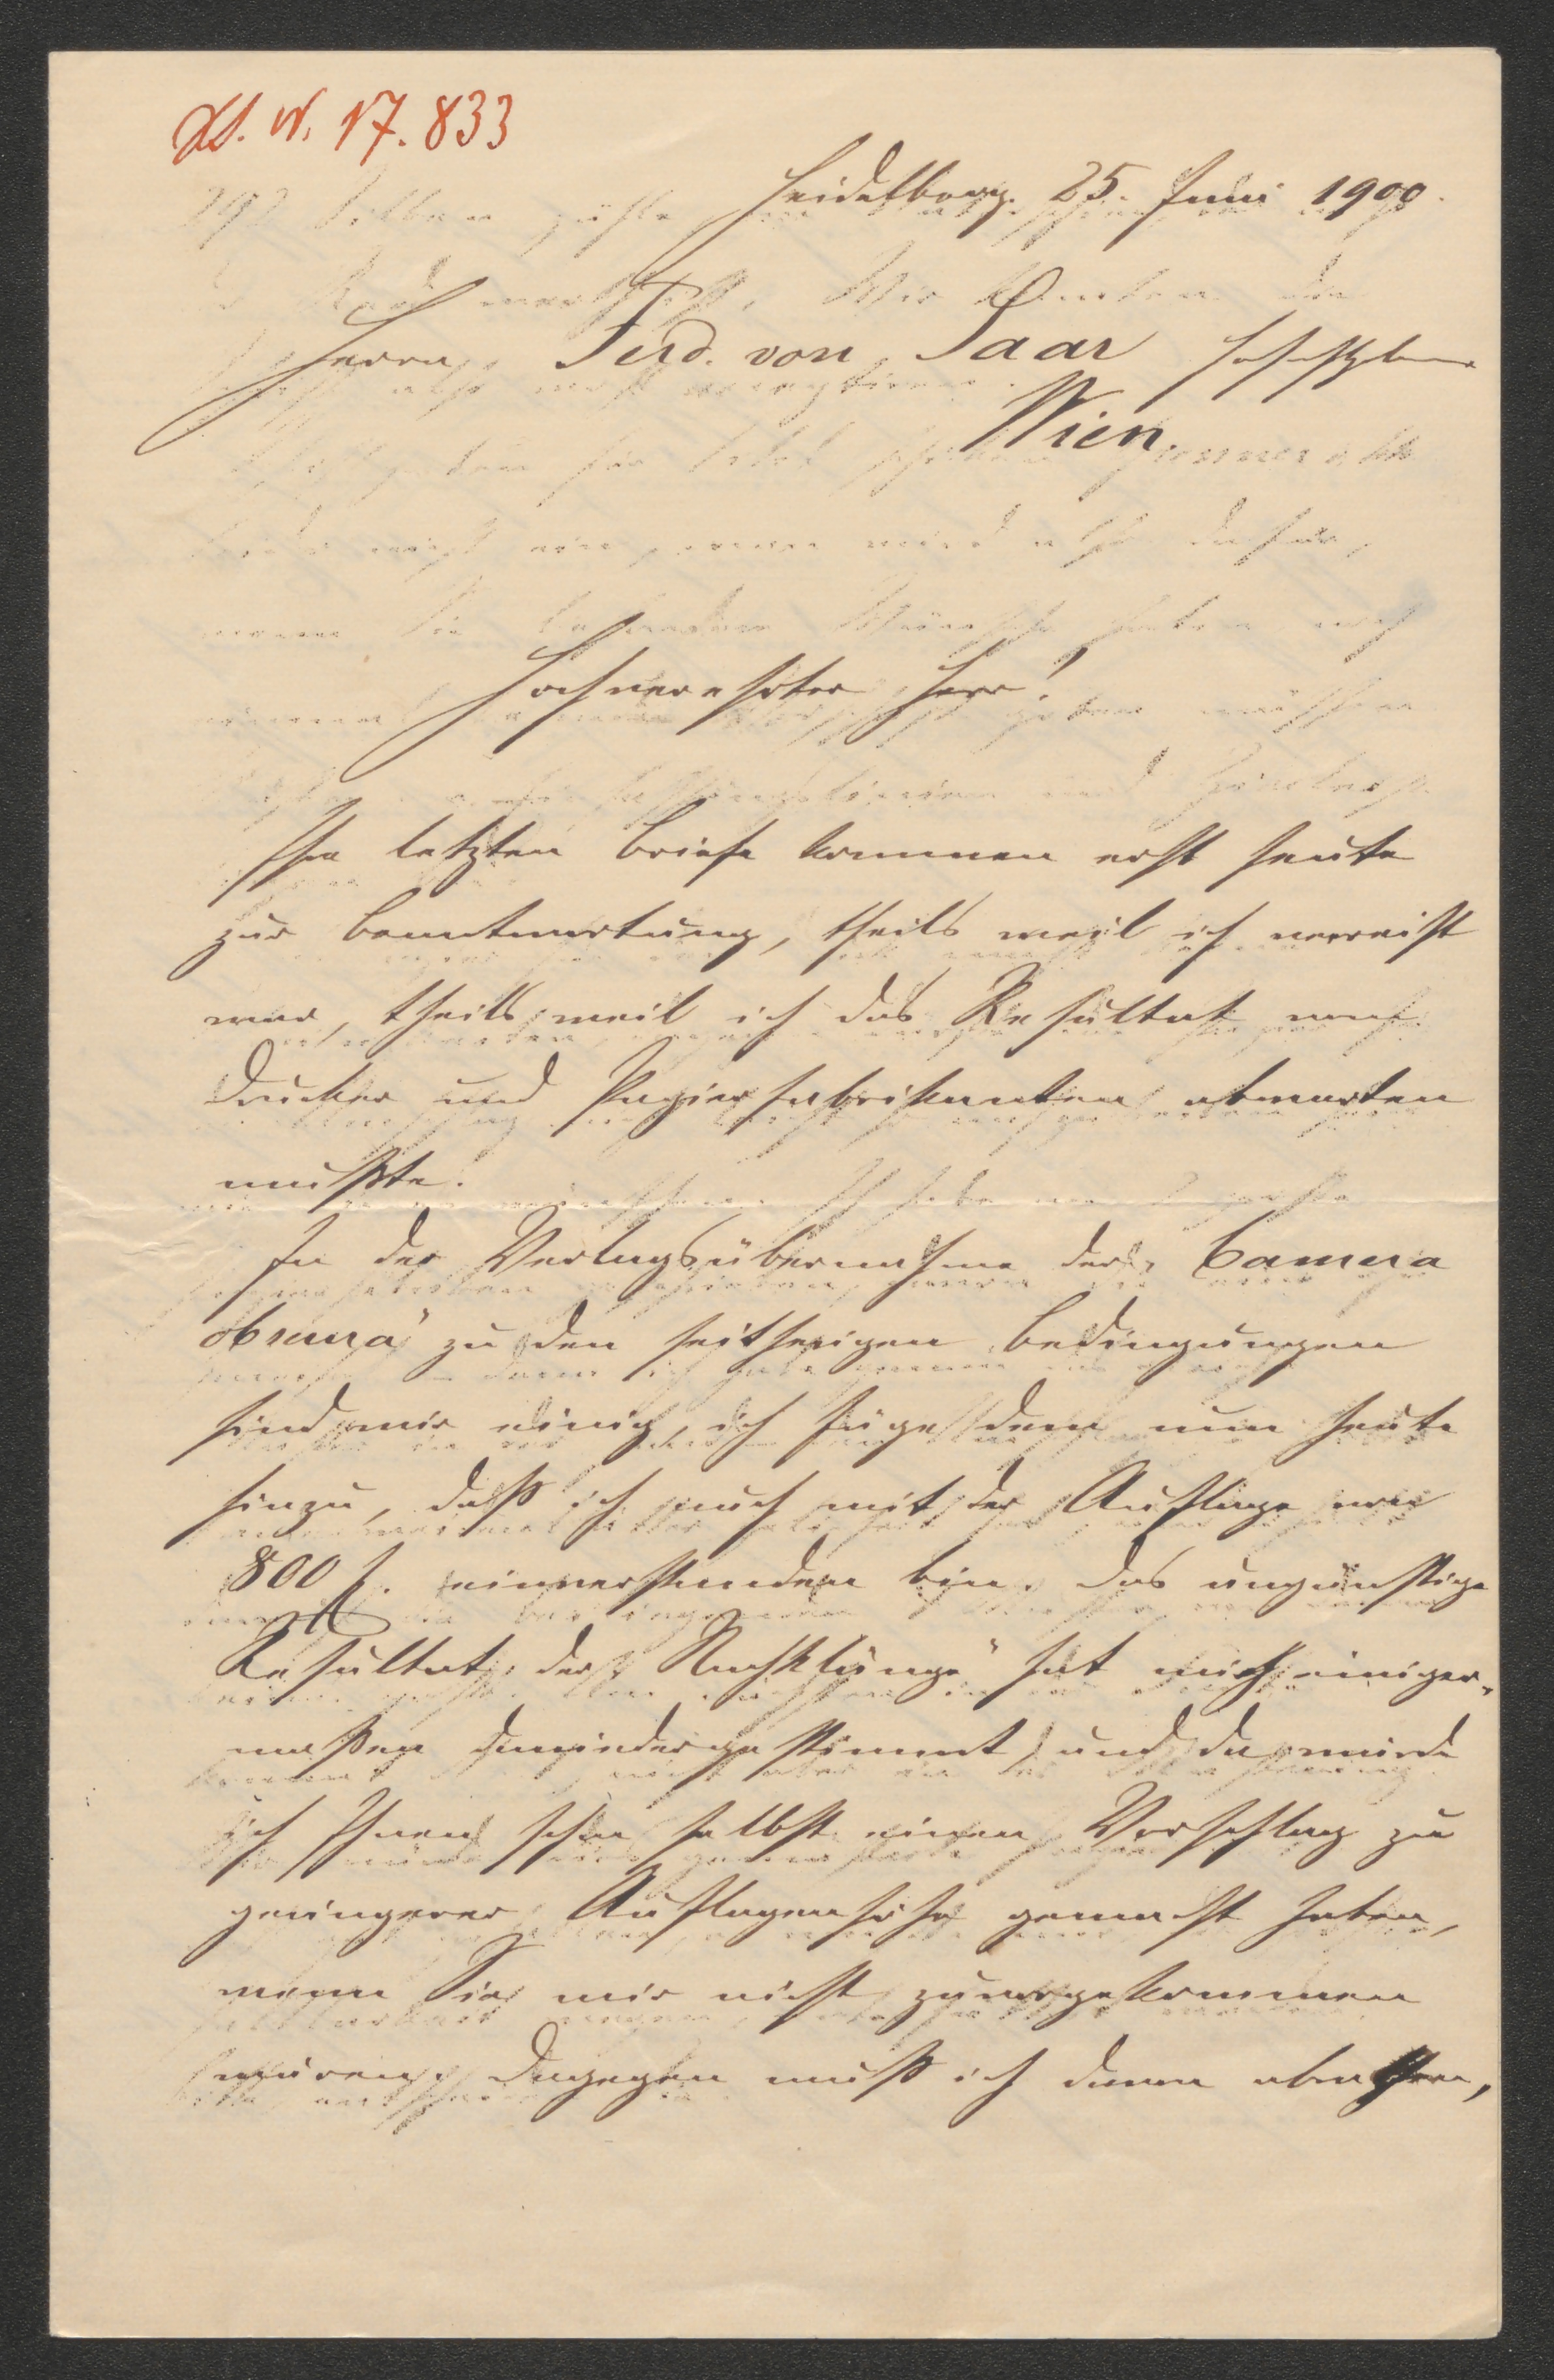 H. N. 17.833
Heidelberg. 25. Juni 1900.
Herrn Ferd. von Saar Hochwohlgeb.
Wien.
Hochverehrter Herr!
Ihre letzten Briefe kommen erst heute
zur Beantwortung, theils weil ich verreist
war, theils weil ich das Resultat von
Drucker und Papierfabrikanten abwarten
mußte.
In der Verlagsübernahme der „Camera
obscura" zu den seitherigen Bedingungen
sind wir einig, ich füge dem nun heute
hinzu, daß ich auch mit der Auflage von
800 E. einverstanden bin. Das ungünstige
Resultat der „Nachklänge" hat mich einiger-
maßen und da würde
ich Ihnen schon selbst einen Vorschlag zu
geringerer Auflagenhöhe gemacht haben,
wenn Sie mir nicht zuvorgekommen
wären. Dagegen muß ich dann